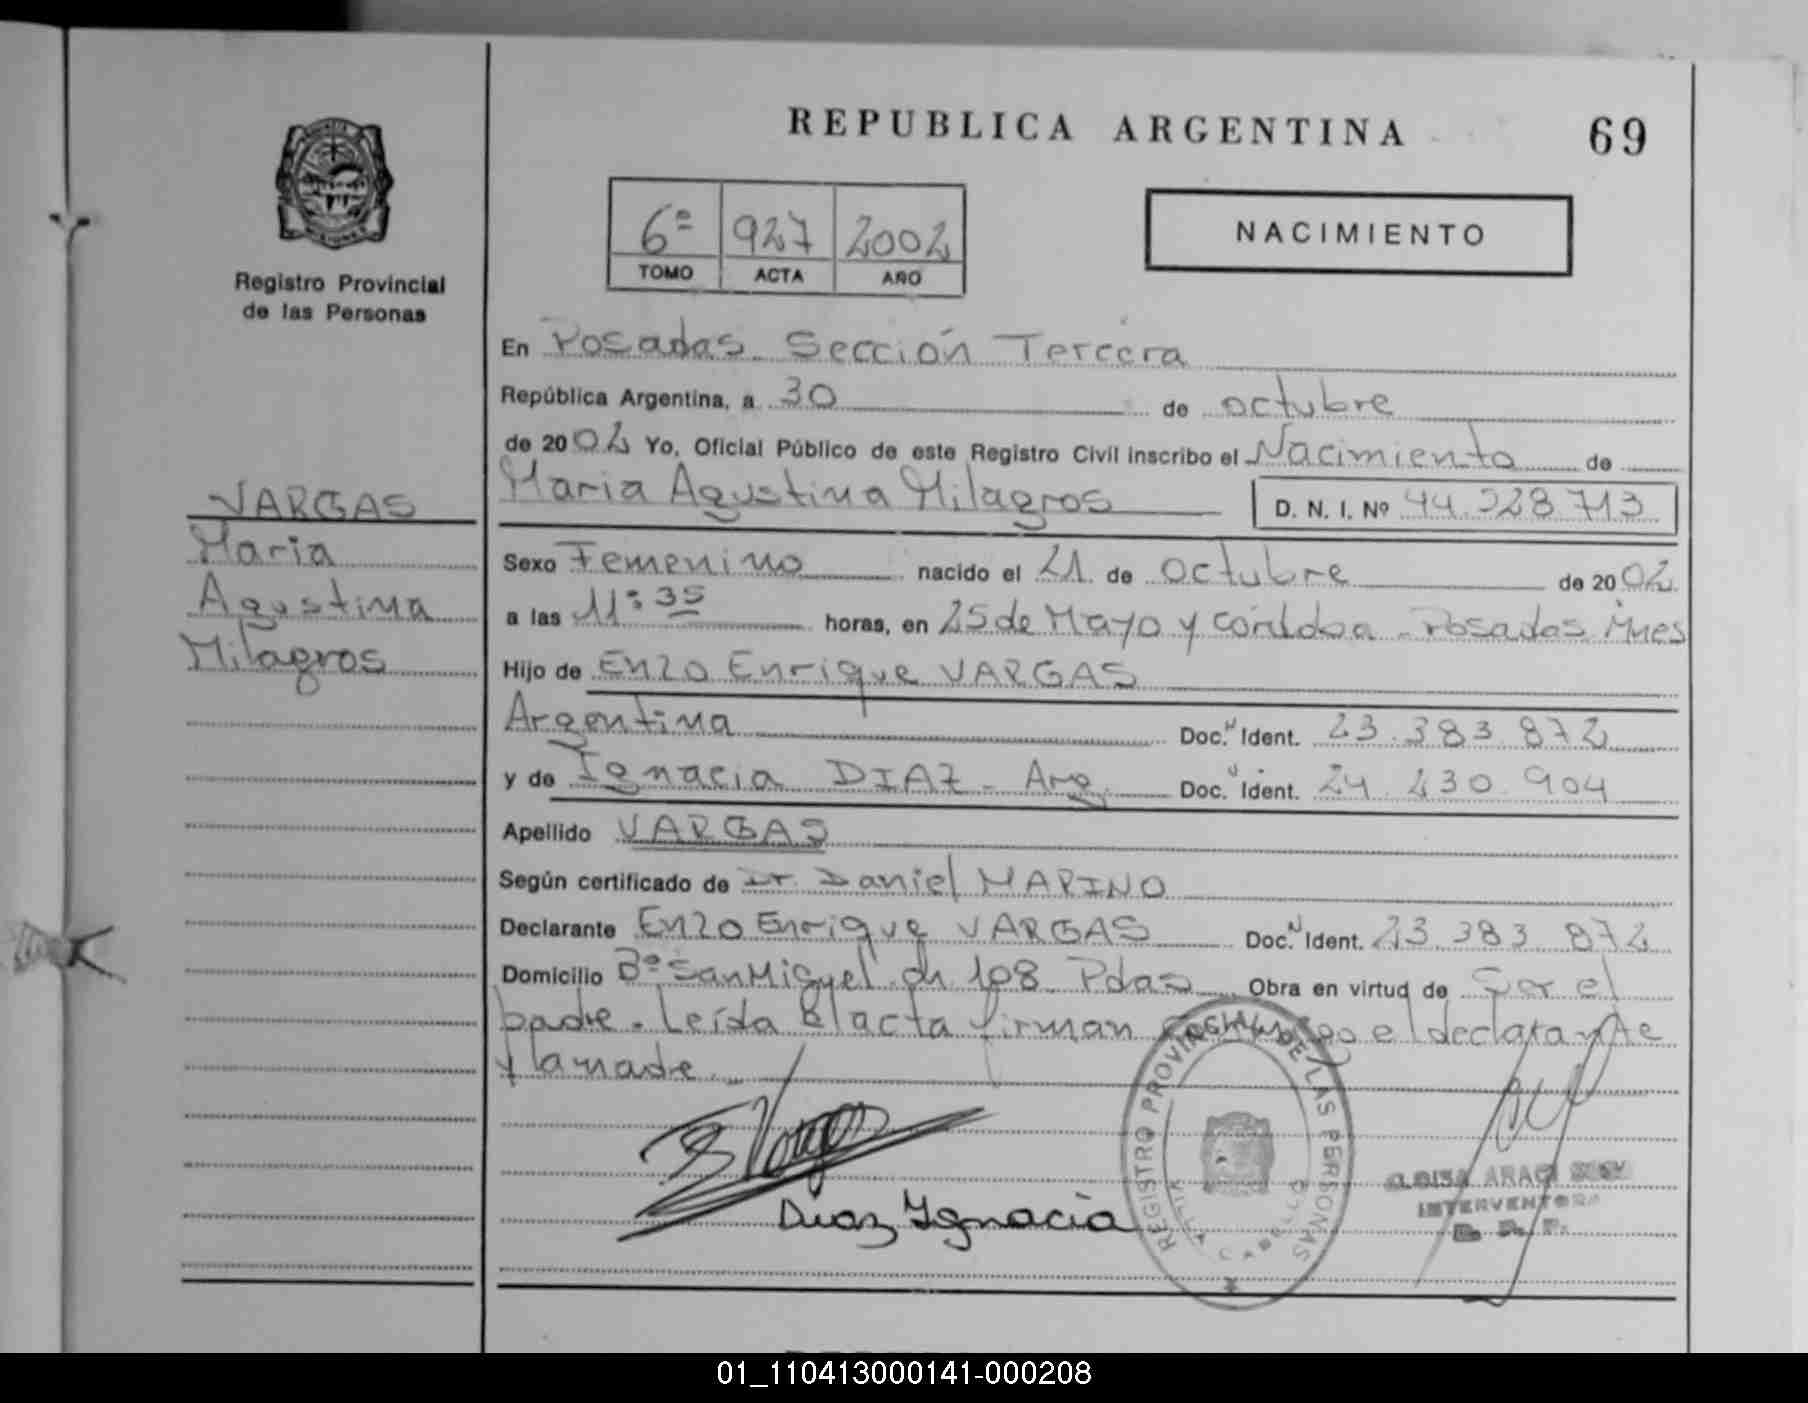 REPUBLICA ARGENTINA 69
6º 927 2002
TOMO ACTA AÑO
NACIMIENTO
Registro Provincial
de las Personas
VARGAS
Maria
Agustina
Milagros
En Posadas Sección Tercera
República Argentina, a 30 de octubre
de 2002 Yo, Oficial Público de este Registro Civil inscribo el Nacimiento de
Maria Agustina Milagros D. N. I. Nº 44.228.713
Sexo Femenino nacido el 21 de octubre de 2002
a las 11:35 horas, en 25 de Mayo y Córdoba - Posadas Mnes
Hijo de Enzo Enrique VARGAS
Argentina Doc. Ident. 23.383.872
y de Ignacia DIAZ - Arg. Doc. Ident. 24.230.904
Apellido VARGAS
Según certificado de Dr. Daniel MARINO
Declarante Enzo Enrique VARGAS Doc. Ident. 23.383.872
Domicilio Bº San Miguel ch 108 Pdas Obra en virtud de Ser el
padre. Leída el acta firman el declarante
y la madre.
Diaz Ignacia
REGISTRO PROVINCIAL DE LAS PERSONAS
INTERVENTORA
01_110413000141-000208